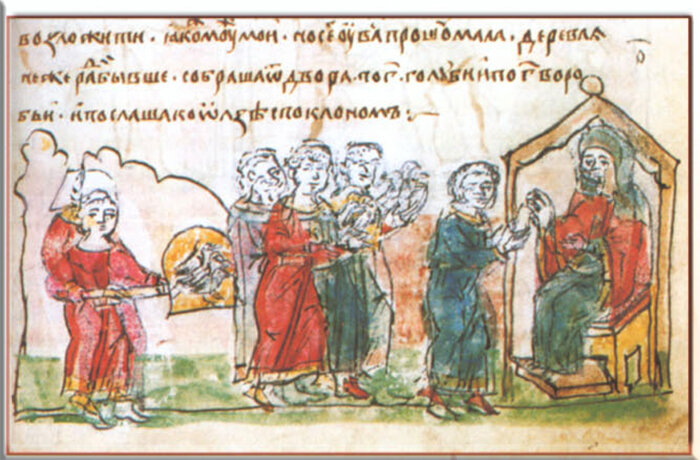 возложити · ꙗко моу мои · но се оу ва прошю мала · деревлѧ
не же ра бывше · собраша ѿ двора · по г҃ · голуби и по г҃ воро
бьи · и послаша ко ѡлзѣ с поклономъ :~